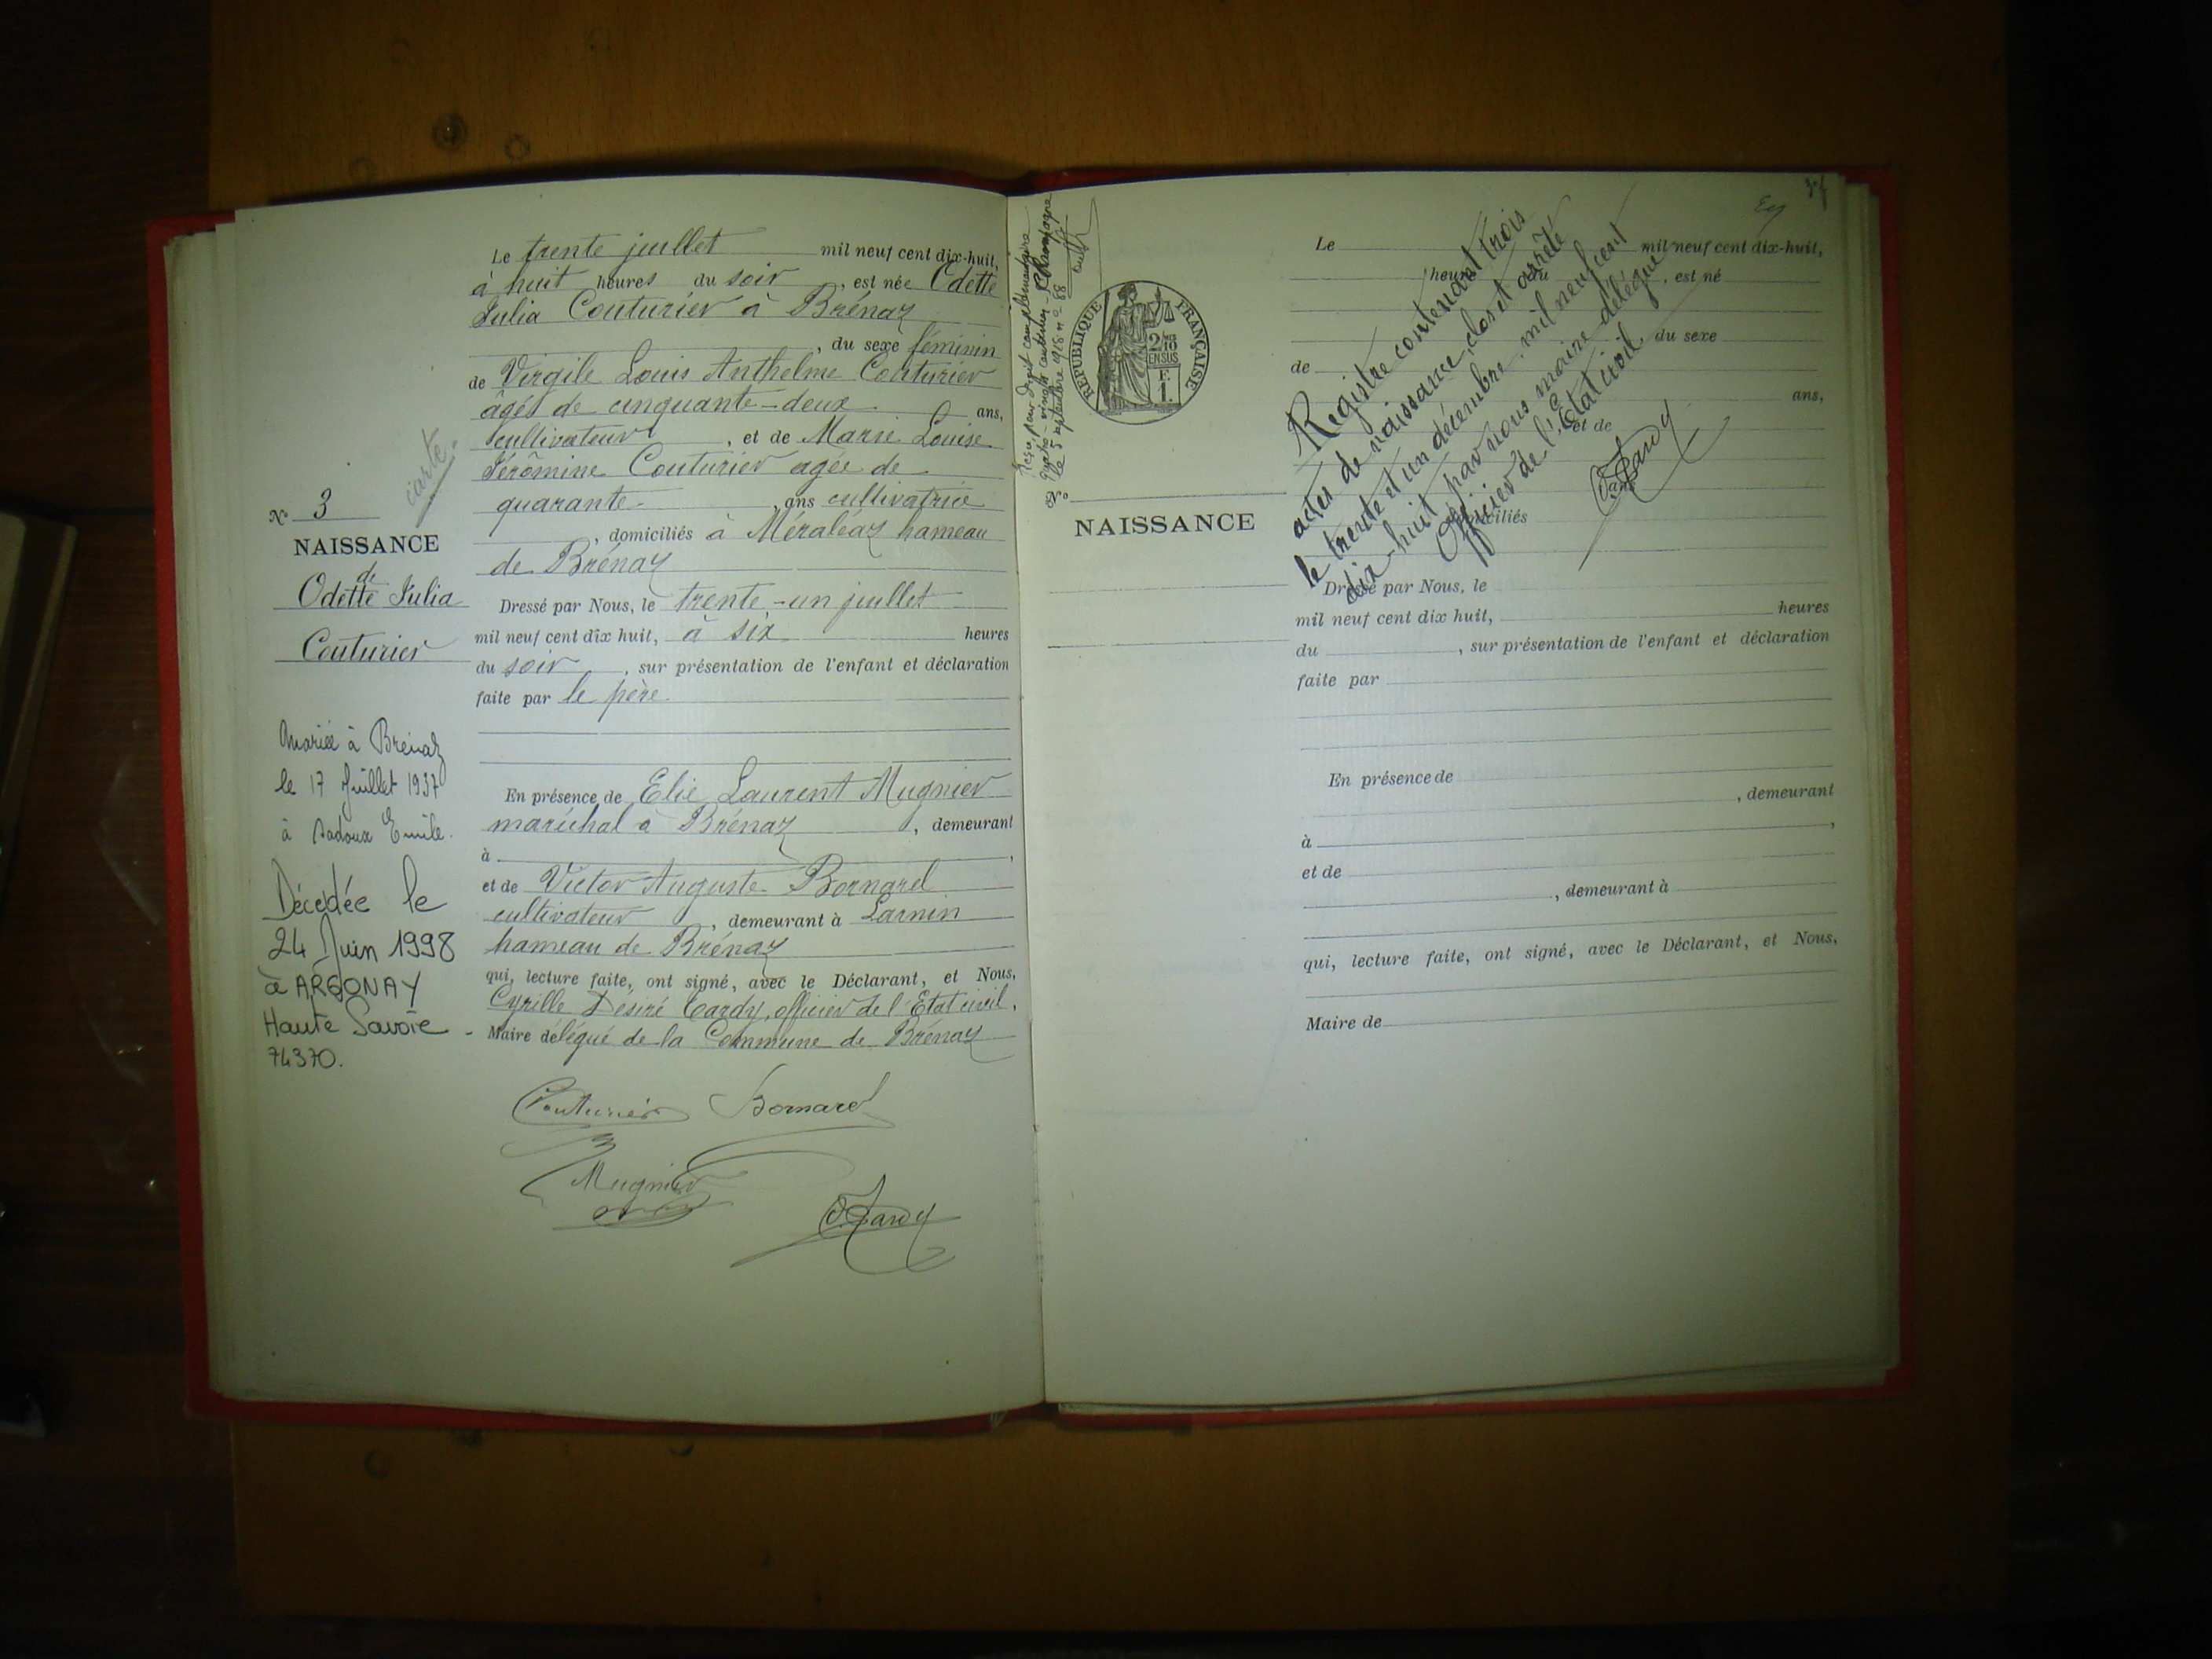 Le trente juillet mil neuf cent dix-huit,
à huit heures du soir, est née Odette
Julia Couturier à Brénaz
, du sexe féminin
de Virgile Louis Anthelme Couturier
âgés de cinquante-deux ans,
cultivateur, et de Marie Louise
Jérômine Couturier agée de
quarante ans cultivatrice
, domiciliés à Méraléaz hameau
de Brénaz
Dressé par Nous, le trente-un juillet
mil neuf cent dix huit, à six heures
du soir, sur présentation de l'enfant et déclaration
faite par le père
En présence de Elie Laurent Mugnier
maréchal à Brénaz, demeurant
à ,
et de Victor Auguste Bornarel
cultivateur, demeurant à
hameau de Brénaz
qui, lecture faite, ont signé, avec le Déclarant, et Nous,
Cyrille Desiré Cardy, officier de l'Etat civil,
Maire délégué de la Commune de Brénaz
Couturier Bornarel
Mugnier
carte.
No 3
NAISSANCE
de
Odette Julia
Couturier
Mariée à Brénaz
le 17 Juillet 1937
à Emile.
Décédée le
24 Juin 1998
à ARGONAY
Haute Savoie -
74370.
Reçu pour droit complémentaire
quatre-vingts centimes - Champagne
le 5 septembre 1918 no 88
REPUBLIQUE FRANÇAISE
2/10
EN SUS
F.
1.
No
NAISSANCE
Le mil neuf cent dix-huit,
heures du , est né
du sexe
de
ans,
, et de
ans
, domiciliés
Dressé par Nous, le
mil neuf cent dix huit, heures
du , sur présentation de l'enfant et déclaration
faite par
En présence de
, demeurant
à ,
et de
, demeurant à
qui, lecture faite, ont signé, avec le Déclarant, et Nous,
Maire de
Registre contenant trois
actes de naissance, clos et arrêté
le trente et un décembre, mil neuf cent
dix-huit par nous maire délégué
Officier de l'Etat civil